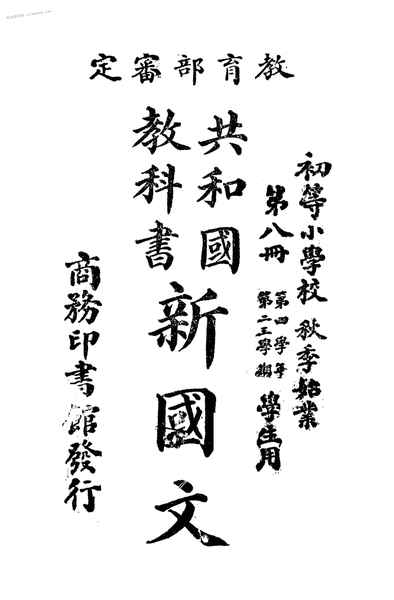 教育部審定
初等小學校 秋季始業
第八冊 第四學年 第二三學期 學生用
共和國
教科書
新國文
商務印書館發行